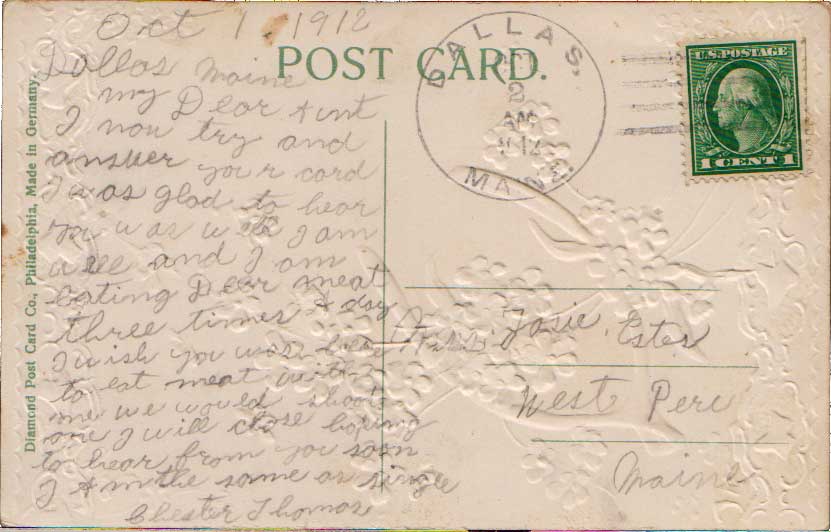 Oct 1. 1912
Dallas Maine
my Dear Aint
I now try and
answer your card
I was glad to hear
you was well I am
well and I am
eating Dear meat
three times A day
I wish you was here
to eat meat with
me we would shoot
one I will close hoping
to hear from you soon
I Am the same as single
Chester Thomas
POST CARD.
DALLAS,
2
AM
1912
MAINE.
U.S. POSTAGE
1 CENT 1
Josie Estes
West Peru
Maine
Diamond Post Card Co., Philadelphia, Made in Germany.